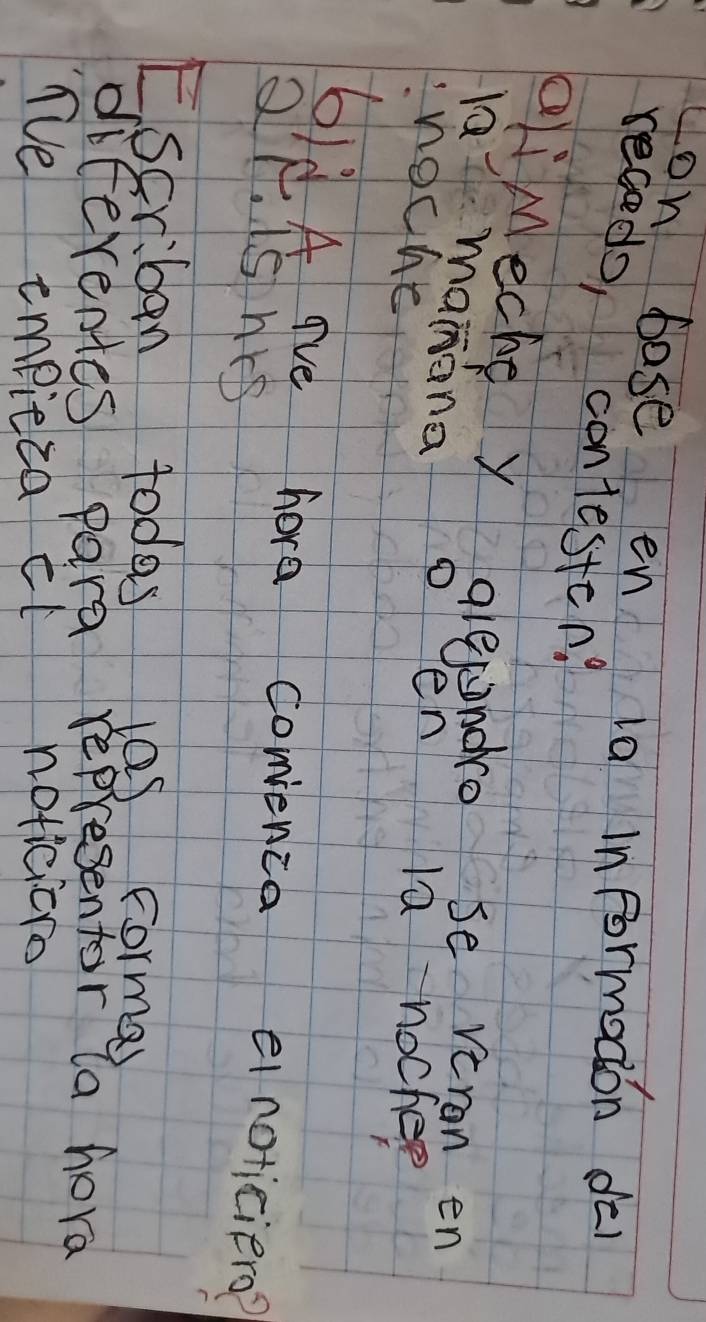 Con base en la información del
recado, contesten:
a)¿Meche y alejandro se veran en
la mañana o en la noche?
: noche
b)¿A que hora comienza el noticiero?
21.15 hrs
Escriban todas las formas
diferentes para representar la hora
que empieza el noticiero